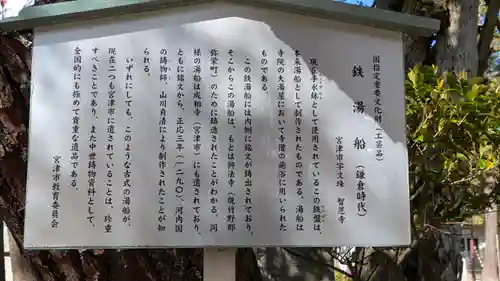 国指定重要文化財(工芸品)
鉄湯船(鎌倉時代)
宮津市字文珠 智恩寺
現在手水鉢として使用されているこの鉄盤は、
本来湯船として制作されたものである。湯船は
寺院の大湯屋において寺僧の施浴に用いられた
ものである。
この鉄湯船には内側に銘文が鋳出されており、
そこからこの湯船は、もとは興法寺(現竹野郡
弥栄町)のために鋳造されたことがわかる。同
様の湯船は成相寺(宮津市)にも遺されており、
ともに銘文から、正応三年(一二九〇)、河内国
の鋳物師、山川貞清により制作されたことが知
られる。
いずれにしても、このような古式の湯船が、
現在二つも宮津市に遺されていることは、珍重
すべきことであり、また中世鋳物資料として、
全国的にも極めて貴重な遺品である。
宮津市教育委員会